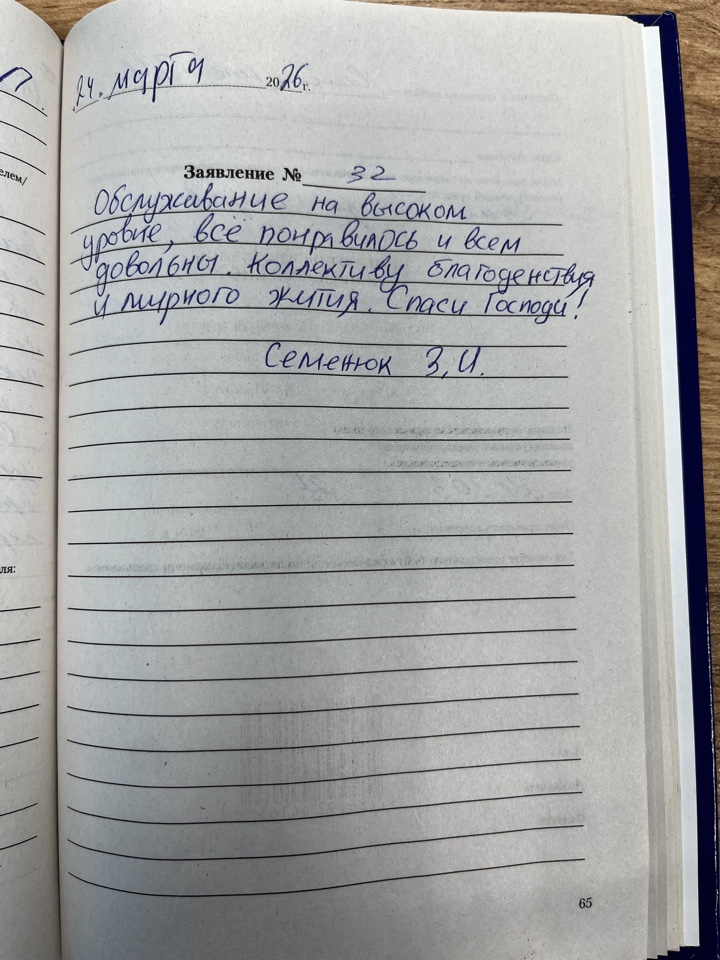 24. марта 2026 г.
Заявление № 32
Обслуживание на высоком
уровне, всё понравилось и всем
довольны. Коллективу благоденствия
и мирного жития. Спаси Господи!
Семенюк З.И.
елем/
ля:
65